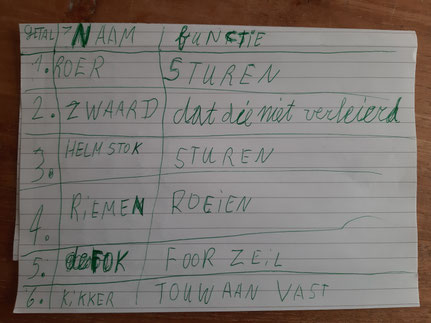 GETAL NAAM FUNCTIE
1. ROER STUREN
2. ZWAARD dat die niet verleierd
3. HELMSTOK STUREN
4. RIEMEN ROEIEN
5. de FOK FOOR ZEIL
6. KIKKER TOUW AAN VAST